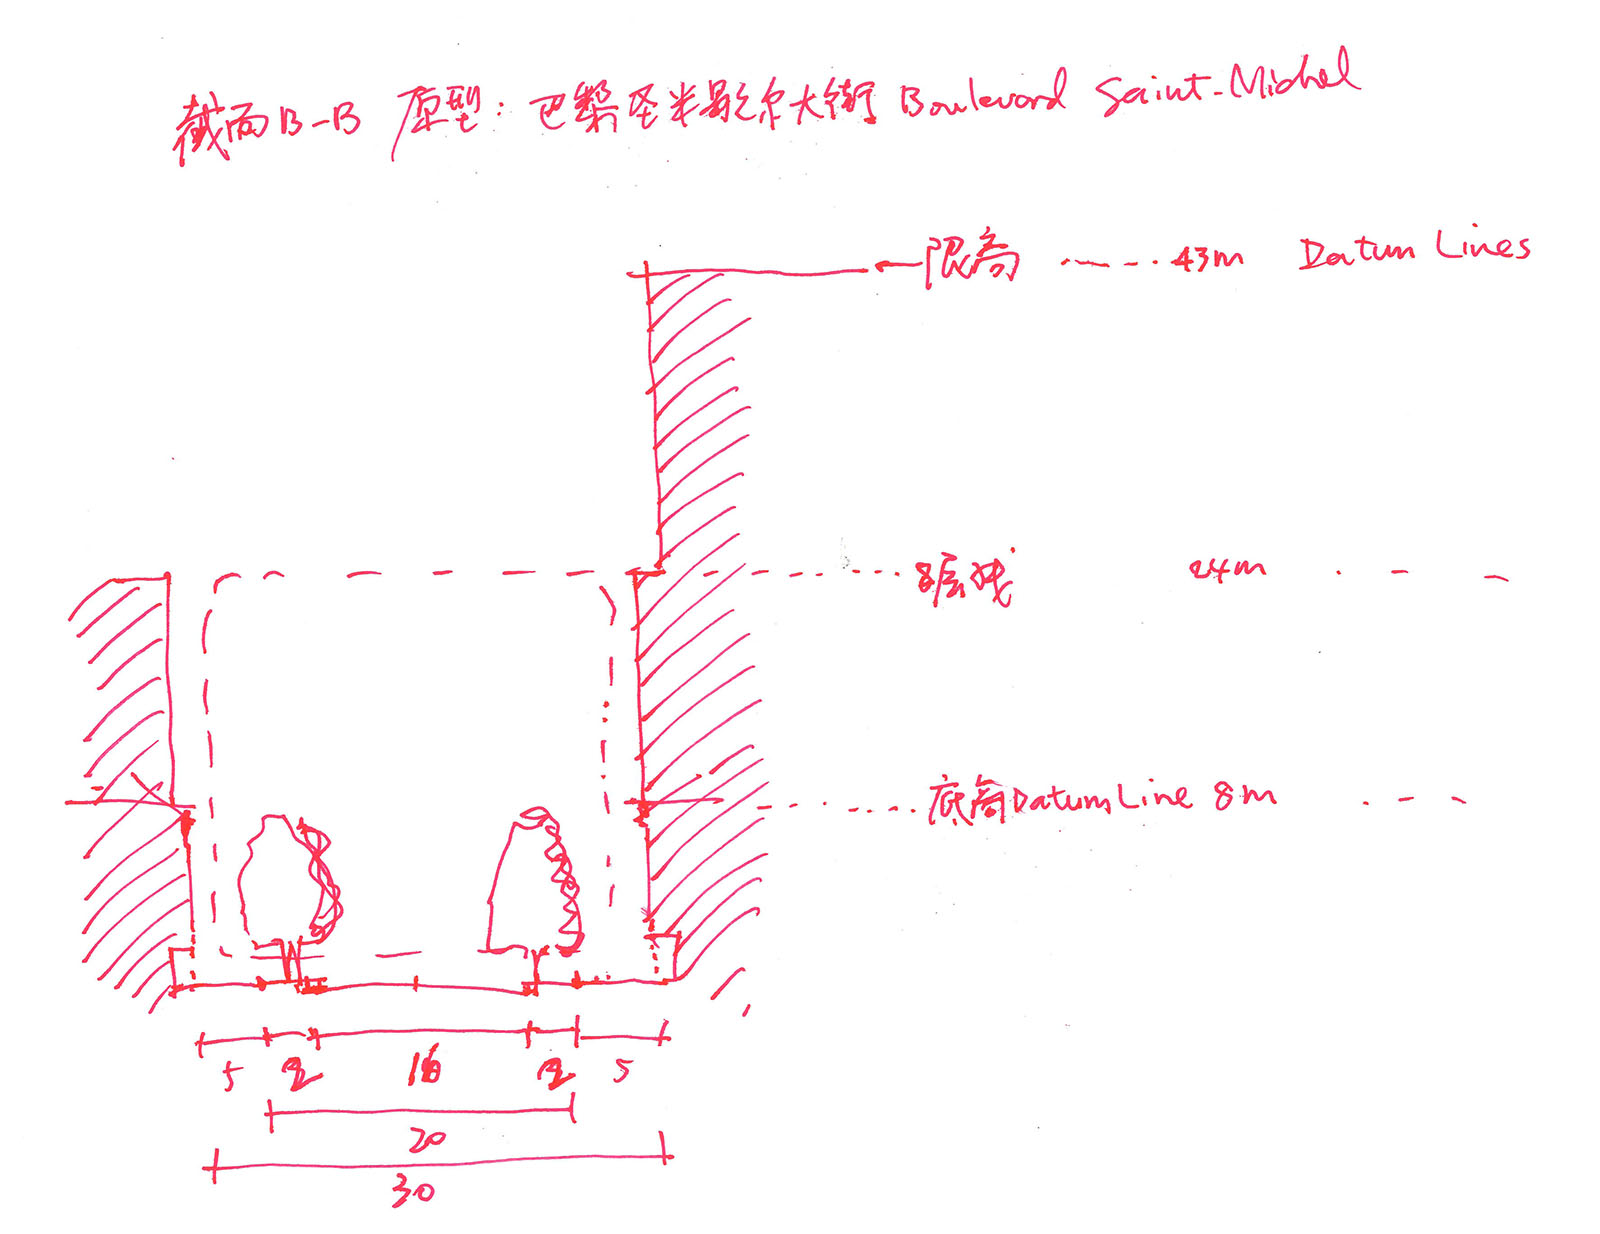 截面B-B 原型：巴黎圣米歇尔大街 Boulevard Saint-Michel
限高 43m Datum Lines
8层线 24m
底高Datum Line 8m
5 2 16 2 5
20
30